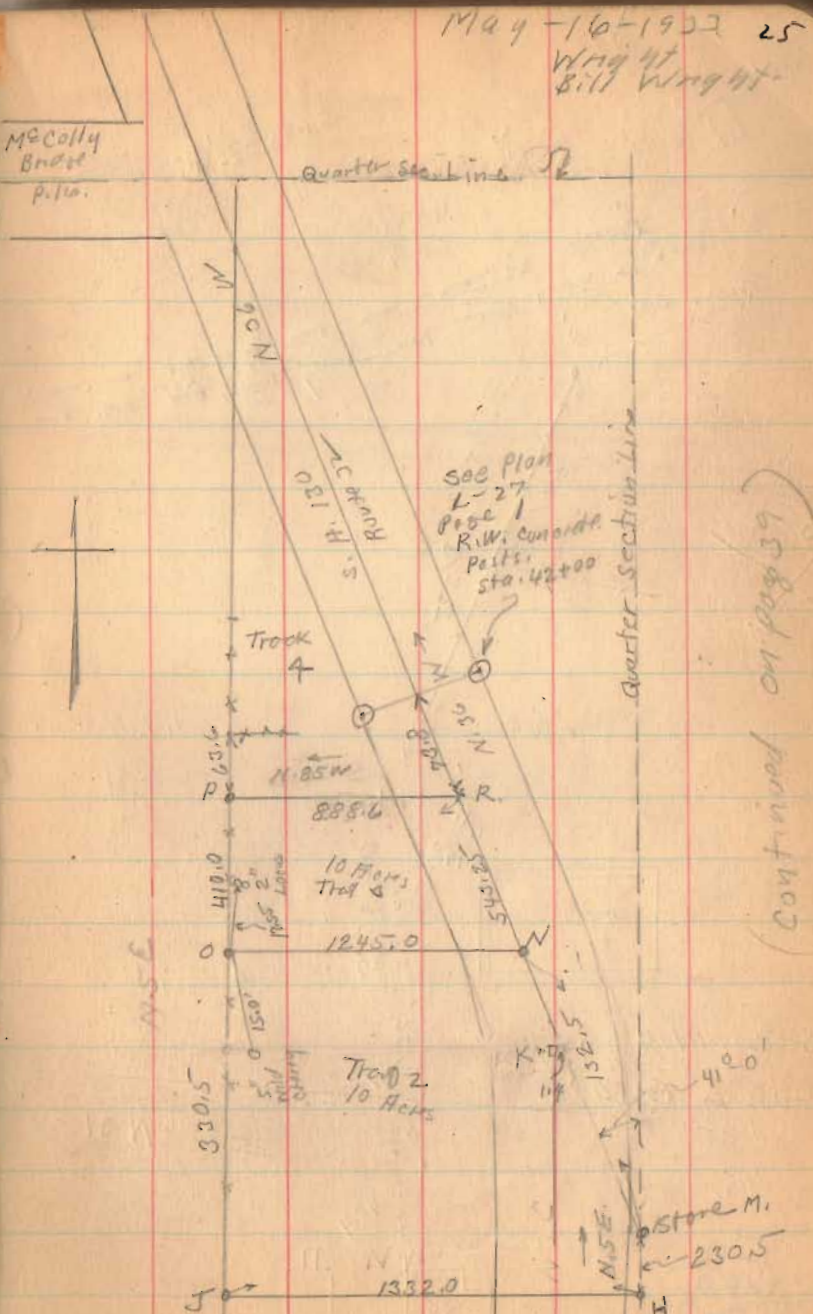 May-16-1933
25
Wright
Bill Wright
McColly
Bridge
Quarter Sec. Line
N 36 W
S.H. 130
Route 32
See Plan
L-27
Page 1
R.W. Concrete
Posts.
Sta. 42+00
Quarter Section Line
(Continued on page 39)
Track
4
63.6
N.85W
P
888.6
R.
N.36 W
410.0
10 Acres
543.25
O
1245.0
N
N.5E
15.0'
330.5
Trad 2
10 Acres
K
132.5
114
41°0-
N.5E.
Stone M.
230.5
J
1332.0
I